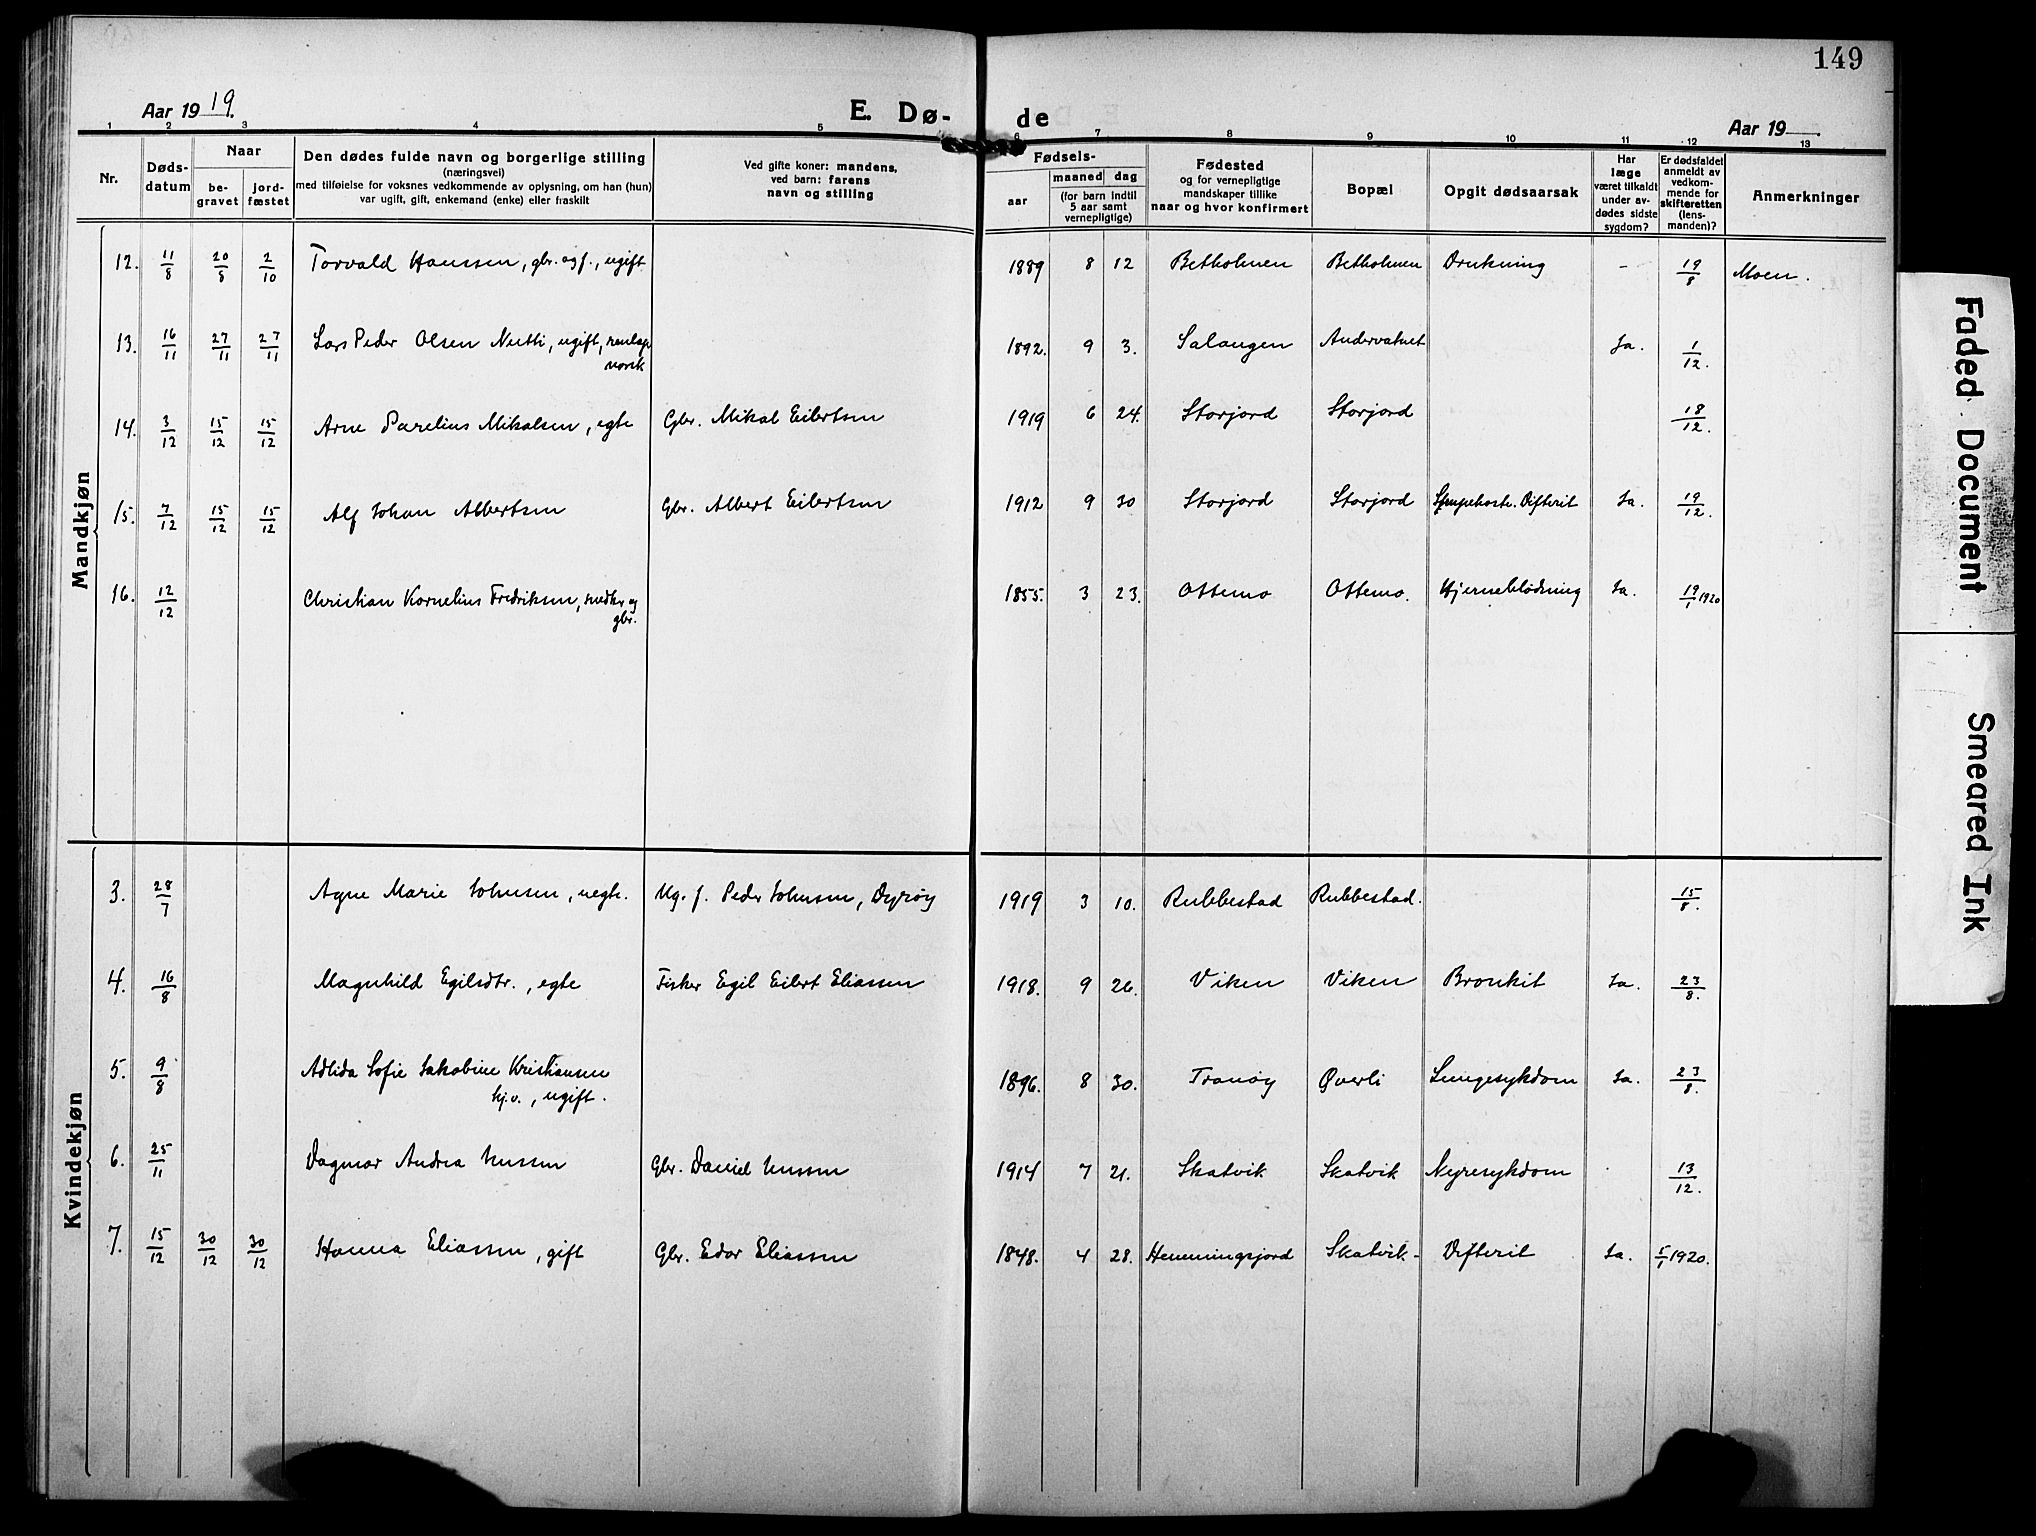 149
Aar 1919.
E. Dø- de
Aar 19
1 2 3 4 5 6 7 8 9 10 11 12 13
Nr.
Døds-
datum
Naar
be-
gravet
jord-
fæstet
Den dødes fulde navn og borgerlige stilling
(næringsvei)
med tilføielse for voksnes vedkommende av oplysning, om han (hun)
var ugift, gift, enkemand (enke) eller fraskilt
Ved gifte koner: mandens,
ved barn: farens
navn og stilling
Fødsels-
aar
maaned dag
(for barn indtil
5 aar samt
vernepligtige)
Fødested
og for vernepligtige
mandskaper tillike
naar og hvor konfirmert
Bopæl
Opgit dødsaarsak
Har
læge
været tilkaldt
under av-
dødes sidste
sygdom?
Er dødsfaldet
anmeldt av
vedkom-
mende for
skifteretten
(lens-
manden)?
Anmerkninger
Mandkjøn
12. 11/8 20/8 2/10 Torvald Hanssen, gbr. og f., ugift 1889 8 12 Betholmen Betholmen Drukning - 19/8 Moen.
13. 16/11 27/11 27/11 Lars Peder Olsen Nutti, ugift, renlap 1892. 9 3. Salangen Andervatnet Ja. 1/12.
norsk
14. 3/12 15/12 15/12 Arne Parelius Mikalsen, egte Gbr. Mikal Eilertsen 1919 6 24. Storjord Storjord 18/12.
15. 7/12 15/12 15/12 Alf Johan Albertsen Gbr. Albert Eilertsen 1912 9 30 Storjord Storjord Difterit Ja. 19/12.
16. 12/12 Christian Kornelius Fredriksen, snedker og 1855. 3 23. Ottemo Ottemo. Hjerneblödning Ja. 19/1 1920
gbr.
Kvindekjøn
3. 28/7 Agne Marie Johnsen, uegte. Ug. f. Peder Johnsen, Dyröy 1919 3 10. Rubbestad Rubbestad. 15/8.
4. 16/8 Magnhild Egilsdtr., egte Fisker Egil Eilert Eliassen 1918. 9 26. Viken Viken Bronkit Ja. 23/8.
5. 9/8 Adlida Sofie Jakobine Kristiansen 1896. 8 30. Tranöy Øverli Lungesykdom Ja. 23/8.
hj.v., ugift.
6. 25/11 Dagmar Andrea Nussen Gbr. Daniel Nussen 1914 7 21. Skatvik Skatvik Nyresykdom 13/12.
7. 15/12 30/12 30/12 Hanna Eliassen, gift Gbr. Edor Eliassen 1848. 4 28. Hemmingsjord Skatvik Difterit Ja. 5/1 1920.
Faded Document
Smeared Ink